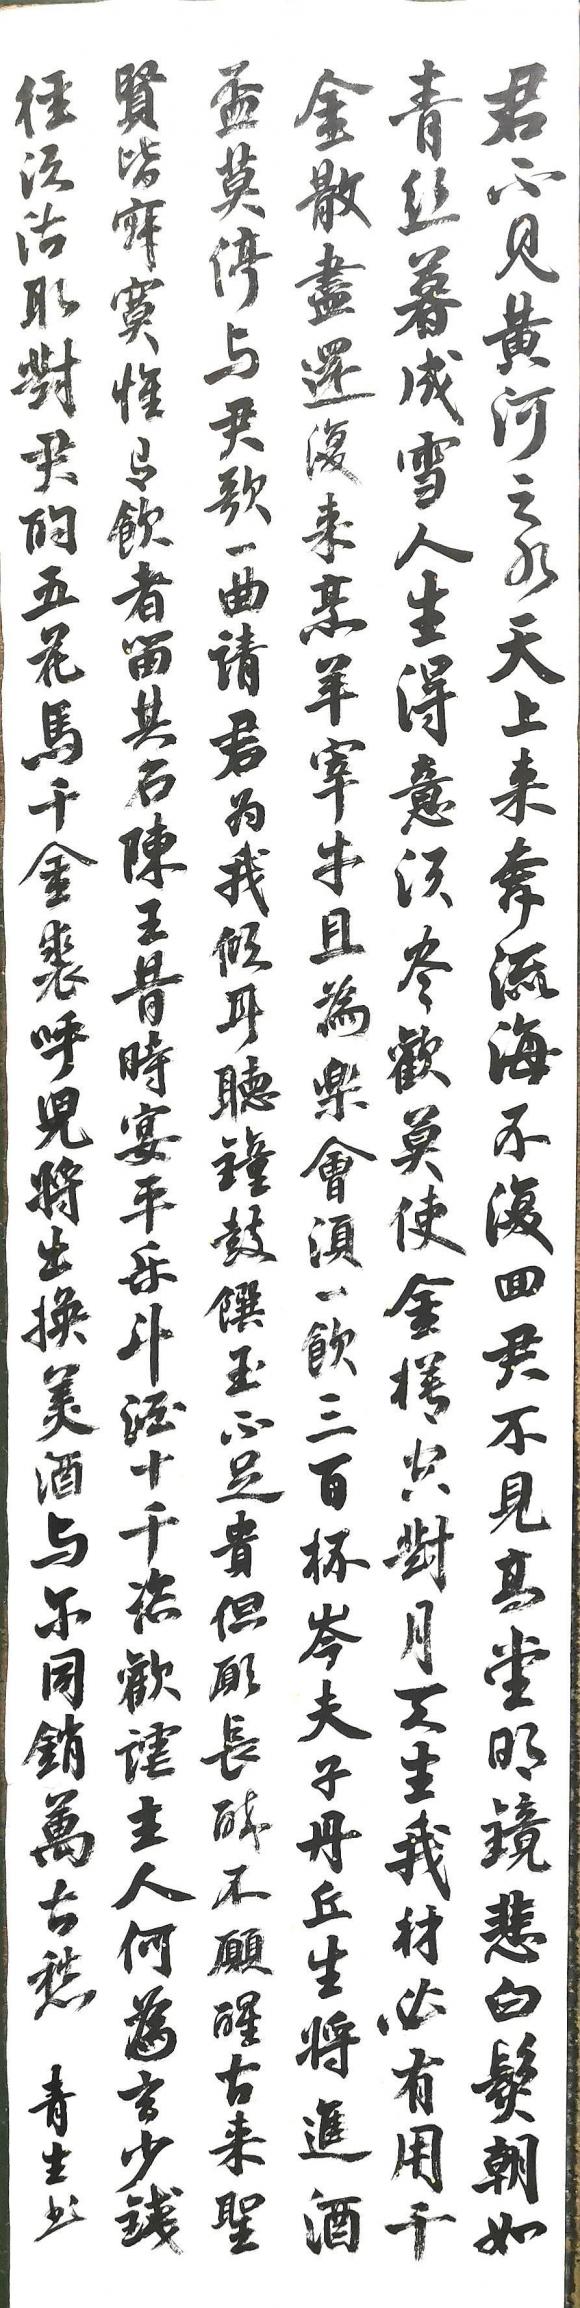 君不見黃河之水天上来奔流海不復回君不見高堂明鏡悲白髮朝如
青丝暮成雪人生得意须尽歡莫使金樽空對月天生我材必有用千
金散盡還復来烹羊宰牛且為樂會須一飲三百杯岑夫子丹丘生將進酒
盃莫停与君歌一曲请君为我倾耳聽鐘鼓饌玉不足貴但願長醉不願醒古来聖
賢皆寂寞惟有飲者留其名陳王昔時宴平乐斗酒十千恣歡謔主人何為言少錢
徑須沽取對君酌五花馬千金裘呼児將出换美酒与尔同銷萬古愁 青生书